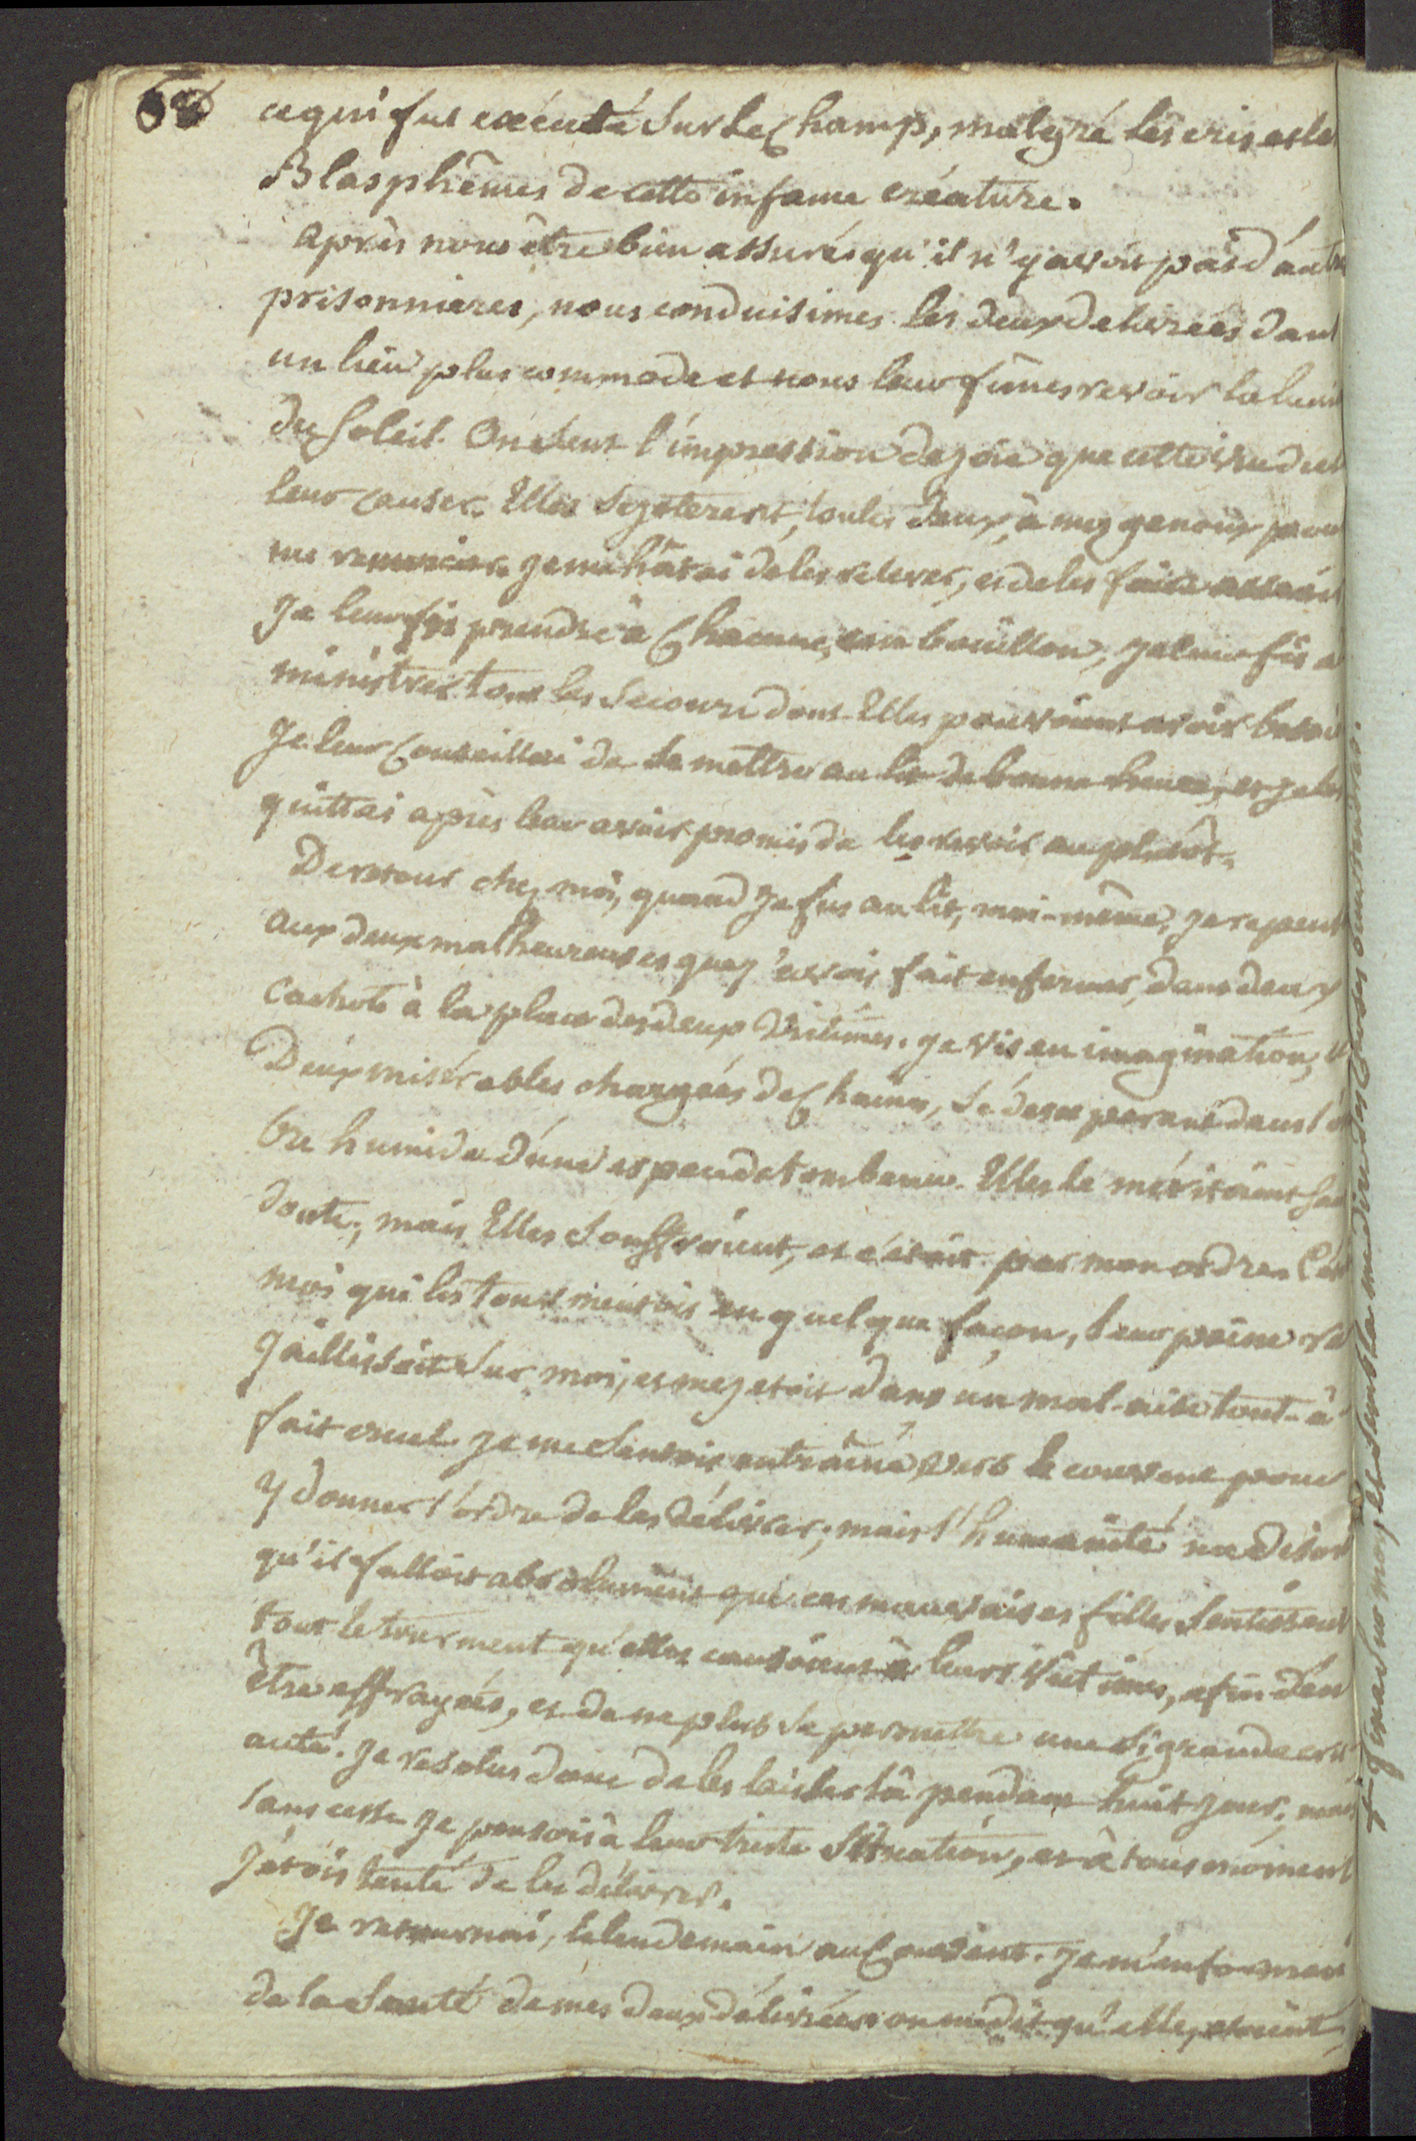 ce qui fut exécuté sur le Champ, malgré les cris et les
Blasphêmes de cette infame créature.
Après nous être bien assurés qu'il n'y avoit pas d'autre
prisonnieres, nous conduisimes les deux delivrées dans
un lieu plus commode et nous leur fimes revoir la lumi
du Soleil. On sent l'impression de joie que cette vue dut
leur causer. Elles se jeterent, toutes deux, à mes genoux pour
me remercier. Je me hâtai de les relever, et de les faire asseoir
Je leur fis prendre à Chacune, un bouillon, je leur fis a
ministrer tous les secours dont Elles pouvoient avoir besoi
Je leur Conseillai de se mettre au lit de bonne heure, et je les
quittai après leur avoir promis de les revoir au plutôt.
De retour chez moi, quand je fus au lit, moi-même, je repens
aux deux malheureuses que j'avois fait enfermer, dans deux
Cachots à la place des deux Victimes. Je vis en imagination,
Deux misérables chargées de Chaines, se desesperant dans l'o
bre humide d'une espece de tombeau. Elles le méritoient san
doute, mais Elles souffroient, et c'étoit par mon ordre. C'ét
moi qui les tourmentois en quelque façon, leur peine re
jaillissoit sur moi, et me jetoit dans un mal-aise tout-à-
fait cruel. Je me sentois entraîné vers le couvent pour
y donner l'ordre de les délivrer; mais l'humanité me disoit
qu'il falloit absolument que ces mauvaises filles sentissent
tout le tourment qu'elles causoient à leurs victimes, afin d'en
être effrayées, et de ne plus se permettre une si grande cru
auté. Je resolus donc de les laisser là pendant huit jours; mais
sans cesse je pensois à leur triste situation, et à tous moment
j'étois tenté de les délivrer.
Je retournai, le lendemain au Couvent. Je m'informai
de la Santé de mes deux délivrées on me dit qu'elles, etoient,